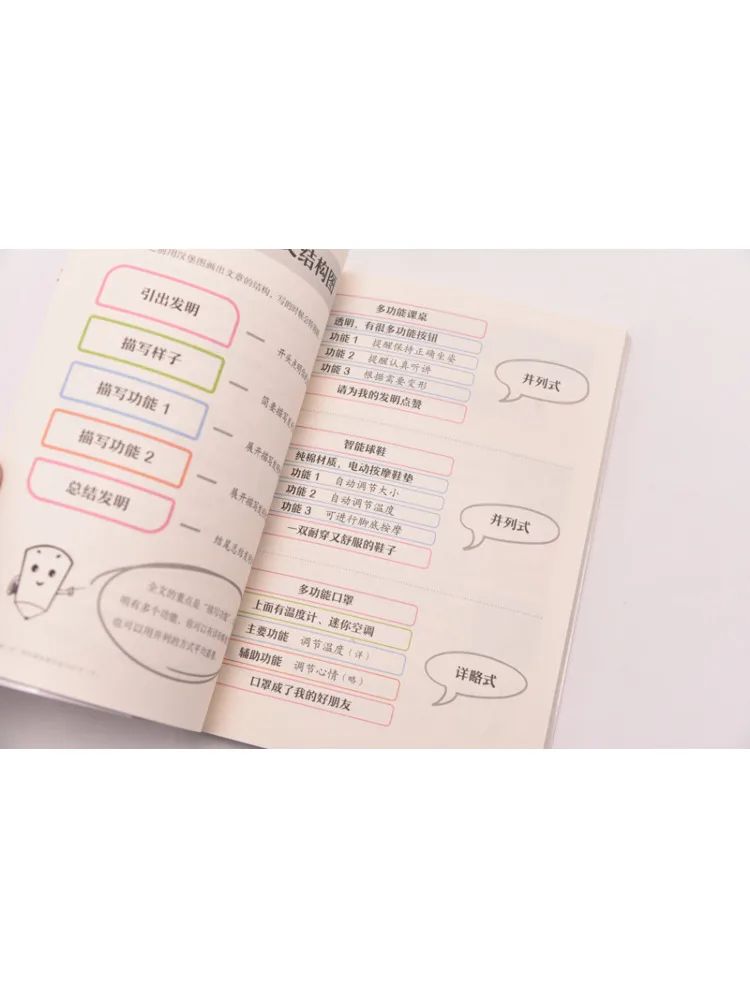 结构图
用汉堡图画出文章的结构，写的时候
引出发明
开头点明
描写样子
简要描写
描写功能 1
展开描写
描写功能 2
展开描写
总结发明
结尾总结
全文的重点是“描写功能”
明有多个功能，你可以有详有略
也可以用并列的方式平均着墨
多功能课桌
透明，有很多功能按钮
功能 1 提醒保持正确坐姿
功能 2 提醒认真听讲
功能 3 根据需要变形
请为我的发明点赞
并列式
智能球鞋
纯棉材质，电动按摩鞋垫
功能 1 自动调节大小
功能 2 自动调节温度
功能 3 可进行脚底按摩
一双耐穿又舒服的鞋子
并列式
多功能口罩
上面有温度计、迷你空调
主要功能 调节温度（详）
辅助功能 调节心情（略）
口罩成了我的好朋友
详略式